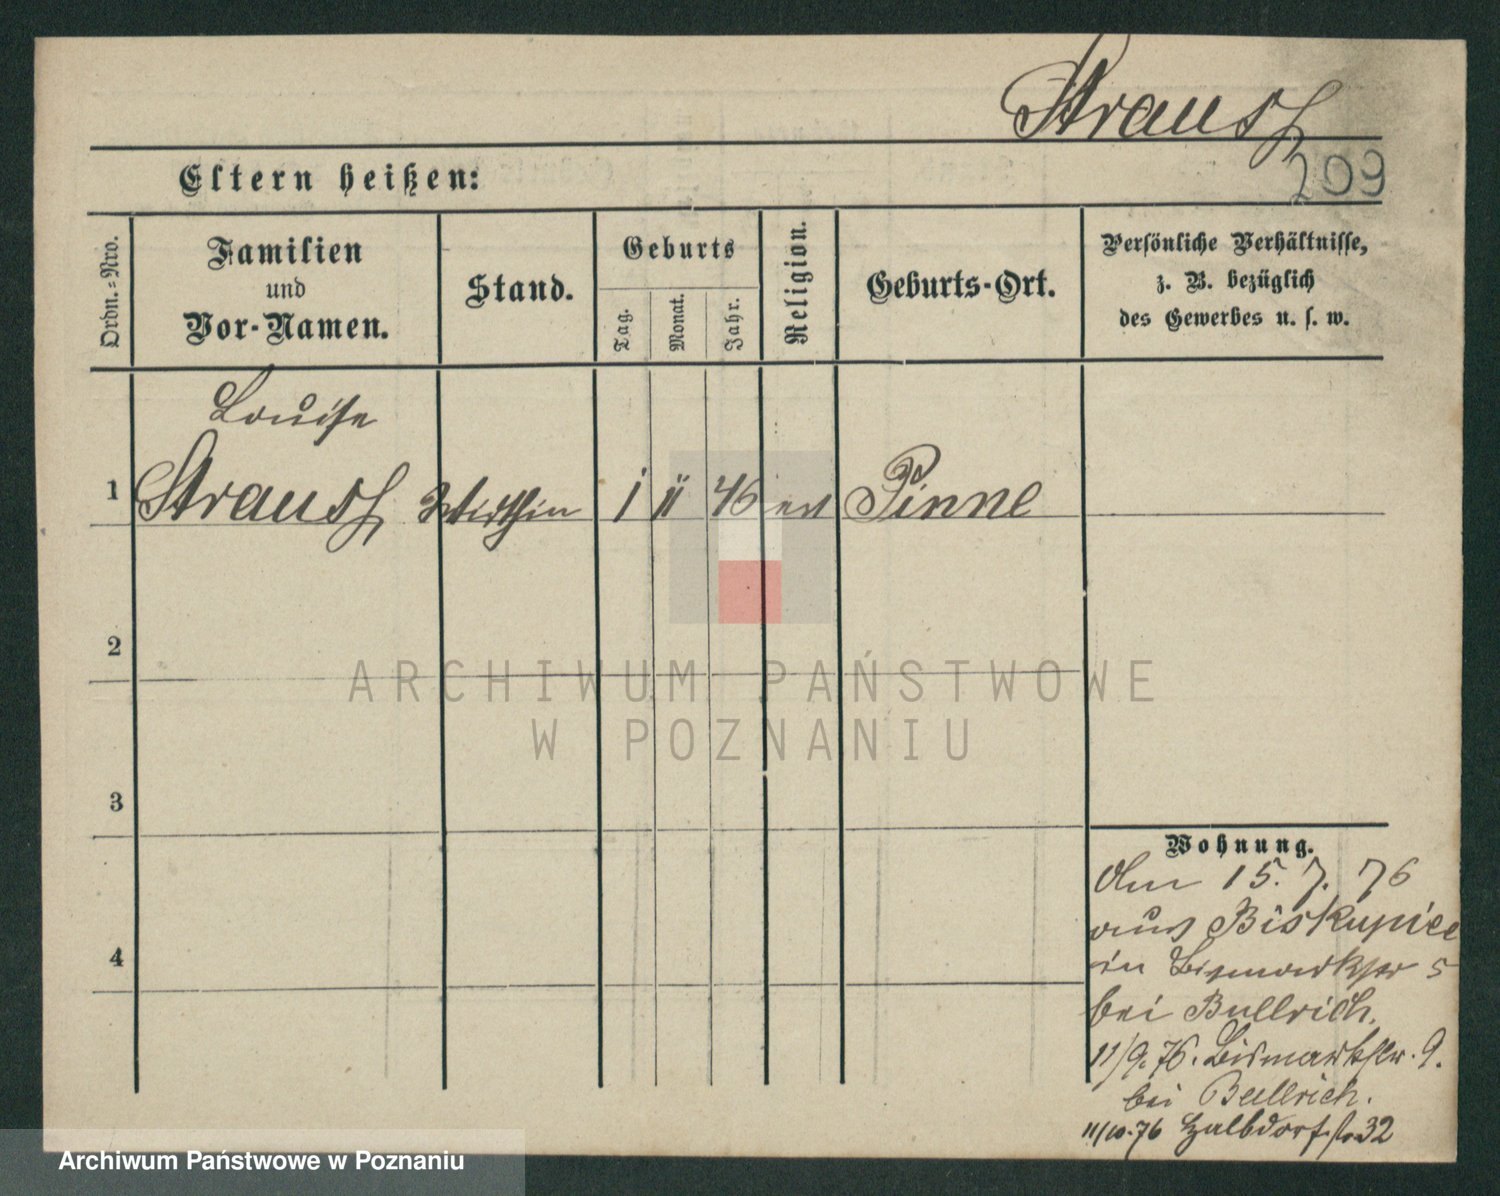 Strausz
209
Eltern heißen:
Ordn.=Nro.
Familien
und
Vor-Namen.
Stand.
Geburts
Tag.
Monat.
Jahr.
Religion.
Geburts-Ort.
Persönliche Verhältnisse,
z. B. bezüglich
des Gewerbes u. s. w.
Louise
1 Strausz Wirthin 1 11 46 ev Pinne
2
3
4
Wohnung.
Am 15. 7. 76
aus Biskupice
in Bismarkstr 5
bei Bullrich.
11/9. 76. Bismarkstr. 9.
bei Bullrich.
11/10. 76 Halbdorfstr 32
ARCHIWUM PAŃSTWOWE
W POZNANIU
Archiwum Państwowe w Poznaniu